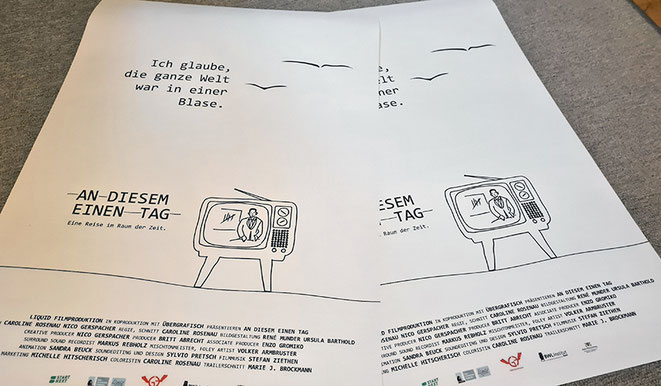 Ich glaube,
die ganze Welt
war in einer
Blase.
AN DIESEM
EINEN TAG
Eine Reise im Raum der Zeit.
LIQUID FILMPRODUKTION IN KOPRODUKTION MIT ÜBERGRAFISCH PRÄSENTIEREN AN DIESEM EINEN TAG
CAROLINE ROSENAU NICO GERSPACHER REGIE, SCHNITT CAROLINE ROSENAU BILDGESTALTUNG RENÉ MUNDER URSULA BARTHOLD
CREATIVE PRODUCER NICO GERSPACHER PRODUCER BRITT ABRECHT ASSOCIATE PRODUCER ENZO GROMIKO
SURROUND SOUND RECORDIST MARKUS REBHOLZ MISCHTONMEISTER, FOLEY ARTIST VOLKER ARMBRUSTER
ANIMATION SANDRA BEUCK SOUNDEDITING UND DESIGN SYLVIO PRETSCH FILMMUSIK STEFAN ZIETHEN
MARKETING MICHELLE HITSCHERICH COLORISTIN CAROLINE ROSENAU TRAILERSCHNITT MARIE J. BROCKMANN
START
WERT
e,
elt
er
ESEM
TAG
Raum der Zeit.
D FILMPRODUKTION IN KOPRODUKTION MIT ÜBERGRAFISCH PRÄSENTIEREN AN DIESEM EINEN TAG
NICO GERSPACHER REGIE, SCHNITT CAROLINE ROSENAU BILDGESTALTUNG RENÉ MUNDER URSULA BARTHOLD
NICO GERSPACHER PRODUCER BRITT ABRECHT ASSOCIATE PRODUCER ENZO GROMIKO
SOUND RECORDIST MARKUS REBHOLZ MISCHTONMEISTER, FOLEY ARTIST VOLKER ARMBRUSTER
SANDRA BEUCK SOUNDEDITING UND DESIGN SYLVIO PRETSCH FILMMUSIK STEFAN ZIETHEN
HITSCHERICH COLORISTIN CAROLINE ROSENAU TRAILERSCHNITT MARIE J. BROCKMANN
START
WERT